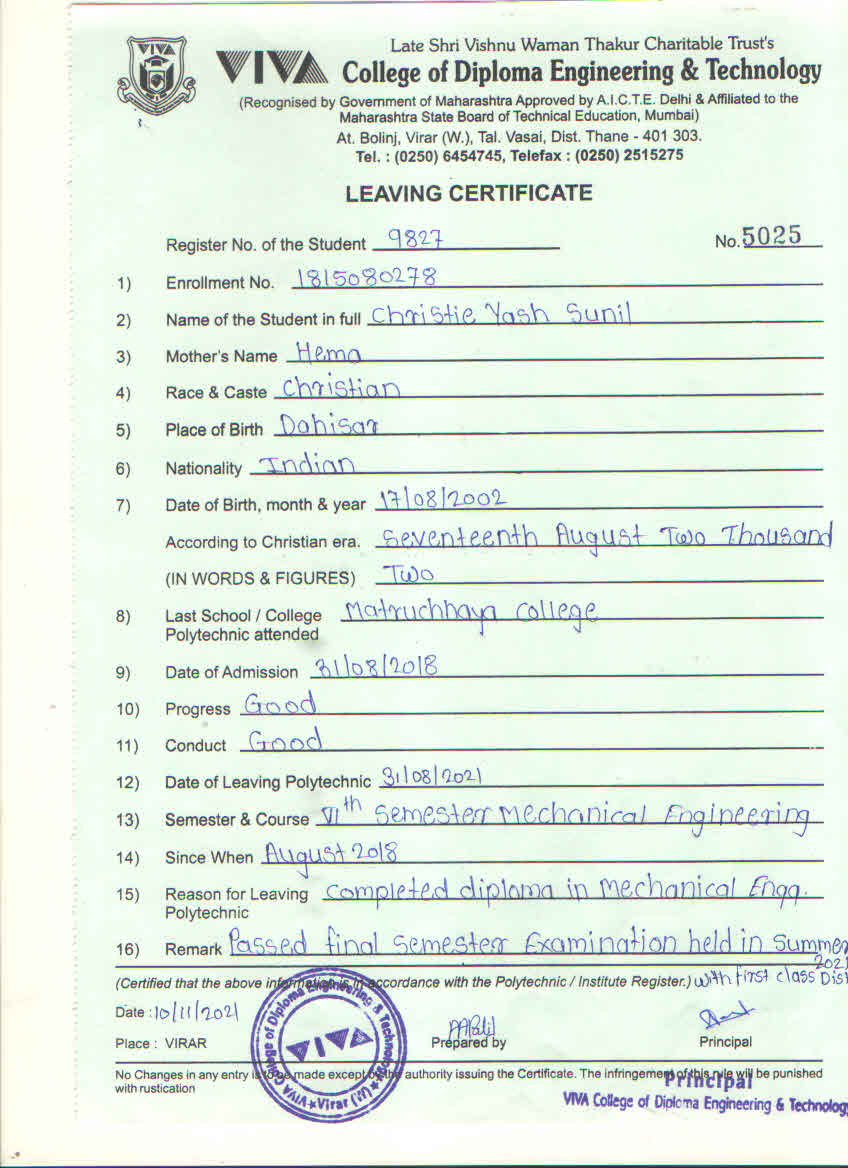 VIVA
Late Shri Vishnu Waman Thakur Charitable Trust's
VIVA College of Diploma Engineering & Technology
(Recognised by Government of Maharashtra Approved by A.I.C.T.E. Delhi & Affiliated to the
Maharashtra State Board of Technical Education, Mumbai)
At. Bolinj, Virar (W.), Tal. Vasai, Dist. Thane - 401 303.
Tel. : (0250) 6454745, Telefax : (0250) 2515275
LEAVING CERTIFICATE
Register No. of the Student 9827 No. 5025
1) Enrollment No. 1815080278
2) Name of the Student in full Christie Yash Sunil
3) Mother's Name Hema
4) Race & Caste Christian
5) Place of Birth Dahisar
6) Nationality Indian
7) Date of Birth, month & year 17/08/2002
According to Christian era. Seventeenth August Two Thousand
(IN WORDS & FIGURES) Two
8) Last School / College Matruchhaya College
Polytechnic attended
9) Date of Admission 31/08/2018
10) Progress Good
11) Conduct Good
12) Date of Leaving Polytechnic 31/08/2021
13) Semester & Course VIth Semester Mechanical Engineering
14) Since When August 2018
15) Reason for Leaving completed diploma in Mechanical Engg.
Polytechnic
16) Remark Passed final semester Examination held in summer
2021
(Certified that the above information is in accordance with the Polytechnic / Institute Register.) with first class Dist
Date : 10/11/2021
Place : VIRAR Prepared by Principal
No Changes in any entry is to be made except by the authority issuing the Certificate. The infringement of this rule will be punished
with rustication
Principal
VIVA College of Diploma Engineering & Technology
VIVA College of Diploma Engineering & Technology
VIVA
Virar (W)